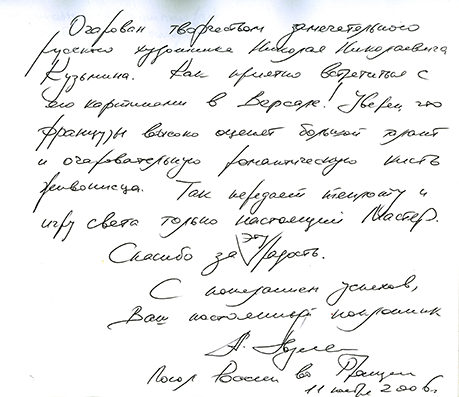 Очарован творчеством замечательного
русского художника Николая Николаевича
Кузьмина. Как приятно встретиться с
его картинами в Версале! Уверен, что
французы высоко оценят большой талант
и очаровательную романтическую кисть
живописца. Так передает теплоту и
игру света только настоящий Мастер.
Спасибо за эту радость.
С пожеланием успехов,
Ваш постоянный поклонник
Посол России во Франции
11 ноября 2006